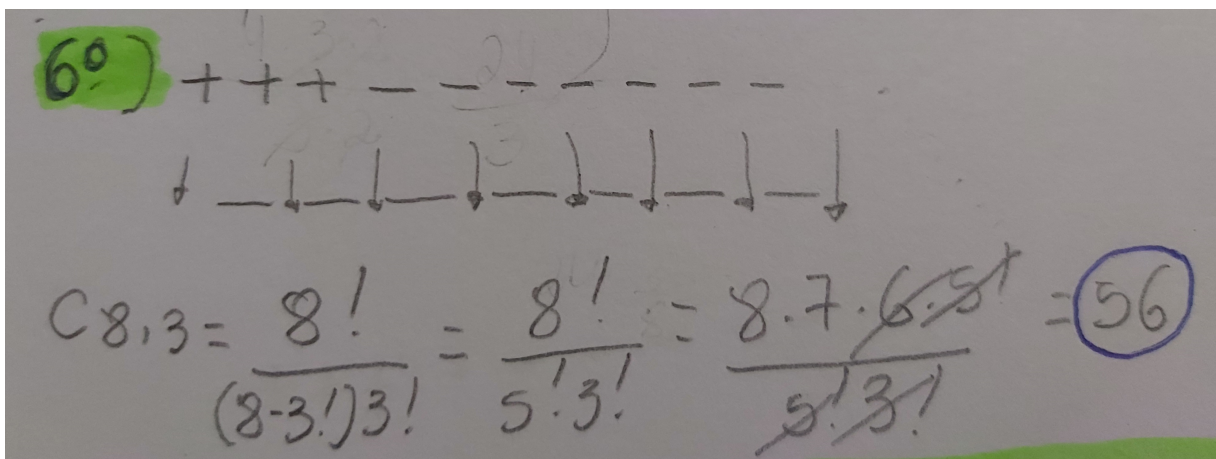 6º) + + + − − − − − − −
↓ _ ↓ _ ↓ _ ↓ _ ↓ _ ↓ _ ↓ _ ↓
C8,3 = 8!/(8-3!)3! = 8!/5!3! = 8.7.6.5!/5!3! = 56